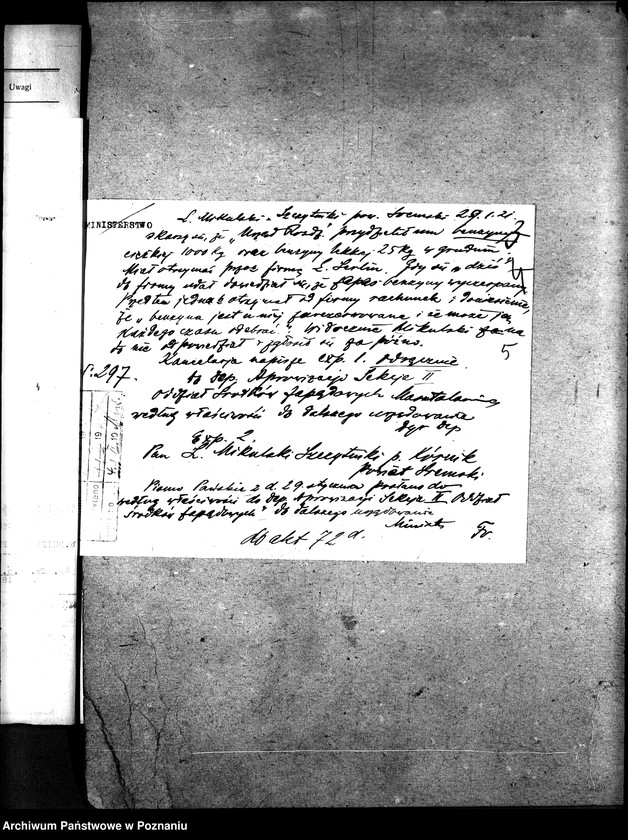 Uwagi
MINISTERSTWO
L. Mikulski Szczytniki pow. Śremski 29.1.21.
skarży się, że „Urząd Rozdz. przydzielał mu benzyny
ciężkiej 1000 kg oraz benzyny lekkiej 25 kg w grudniu
Miał otrzymać przez firmę Gdy się dziś
do firmy udał dowiedział się, że zapas benzyny wyczerpany
Przedtem jednak otrzymał od firmy rachunek i doniesienie,
że „benzyna jest u niej zarezerwowana i że może ją
każdego czasu odebrać". Widocznie Mikulski zaraz
to nie odpowiedział i zgłosił się za późno.
5
Kancelaria napisze exp. 1. odręcznie
S. 297.
do dep. Aprowizacji Sekcja II
Oddział Środków Zapędowych
według właściwości do dalszego urzędowania
Dyr dep
Exp. 2.
Pan L. Mikulski Szczytniki p. Kórnik
powiat Śremski
Pismo Pańskie z d. 29 stycznia posłano do
według właściwości do dep. Aprowizacji Sekcja II Oddział
Środków Zapędowych" do dalszego urzędowania
Minister
Fr.
do akt 72 d.
Archiwum Państwowe w Poznaniu